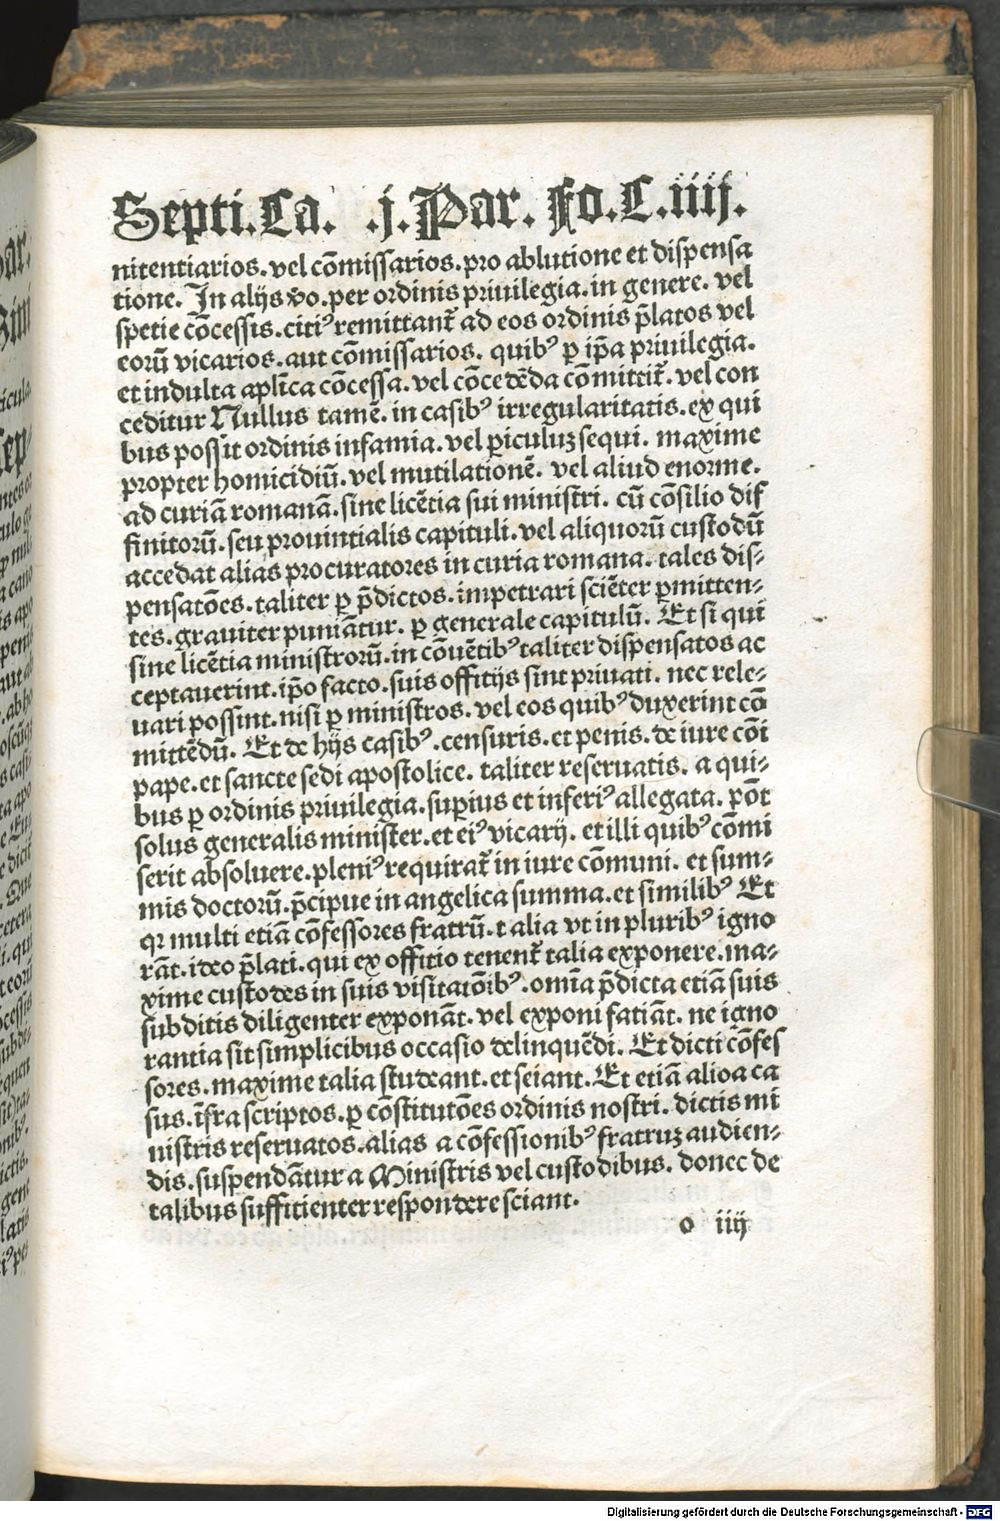 Septi. Ca. .j. Par. Fo. C. iiij.
nitentiarios. vel cõmissarios. pro ablutione et dispensa
tione. In alijs ꝟo. per ordinis priuilegia. in genere. vel
spetie cõcessis. citiꝰ remittant̃ ad eos ordinis p̃latos vel
eorũ vicarios. aut cõmissarios. quibꝰ ꝑ ip̃a priuilegia.
et indulta apl̃ica cõcessa. vel cõcedẽda cõmittit̃. vel con
ceditur Nullus tamẽ. in casibꝰ irregularitatis. ex qui
bus possit ordinis infamia. vel ꝑiculuꝫ sequi. maxime
propter homicidiũ. vel mutilationẽ. vel aliud enorme.
ad curiã romanã. sine licẽtia sui ministri. cũ cõsilio dif
finitorũ. seu prouintialis capituli. vel aliquorũ custodũ
accedat alias procuratores in curia romana. tales dis-
pensatões. taliter ꝑ p̃dictos. impetrari sciẽter ꝑmitten-
tes. grauiter puniãtur. ꝑ generale capitulũ. Et si qui
sine licẽtia ministrorũ. in cõuẽtibꝰ taliter dispensatos ac
ceptauerint. ip̃o facto. suis offitijs sint priuati. nec rele-
uari possint. nisi ꝑ ministros. vel eos quibꝰ duxerint cõ
mittẽdũ. Et de hijs casibꝰ. censuris. et penis. de iure cõi
pape. et sancte sedi apostolice. taliter reseruatis. a qui-
bus ꝑ ordinis priuilegia. suꝑius et inferiꝰ allegata. põt
solus generalis minister. et eiꝰ vicarij. et illi quibꝰ cõmi
serit absoluere. pleniꝰ requirat̃ in iure cõmuni. et sum-
mis doctorũ. p̃cipue in angelica summa. et similibꝰ Et
qꝛ multi etiã cõfessores fratrũ. t alia vt in pluribꝰ igno
rãt. ideo p̃lati. qui ex offitio tenent̃ talia exponere. ma-
xime custodes in suis visitatõibꝰ. omĩa p̃dicta etiã suis
subditis diligenter exponãt. vel exponi fatiãt. ne igno
rantia sit simplicibus occasio delinquẽdi. Et dicti cõfes
sores. maxime talia studeant. et seiant. Et etiã alioa ca
sus. ĩfra scriptos. ꝑ cõstitutões ordinis nostri. dictis mi
nistris reseruatos. alias a cõfessionibꝰ fratruꝫ audien-
dis. suspendãtur a Ministris vel custodibus. donec de
talibus suffitienter respondere sciant.
o iiij
Digitalisierung gefördert durch die Deutsche Forschungsgemeinschaft - DFG